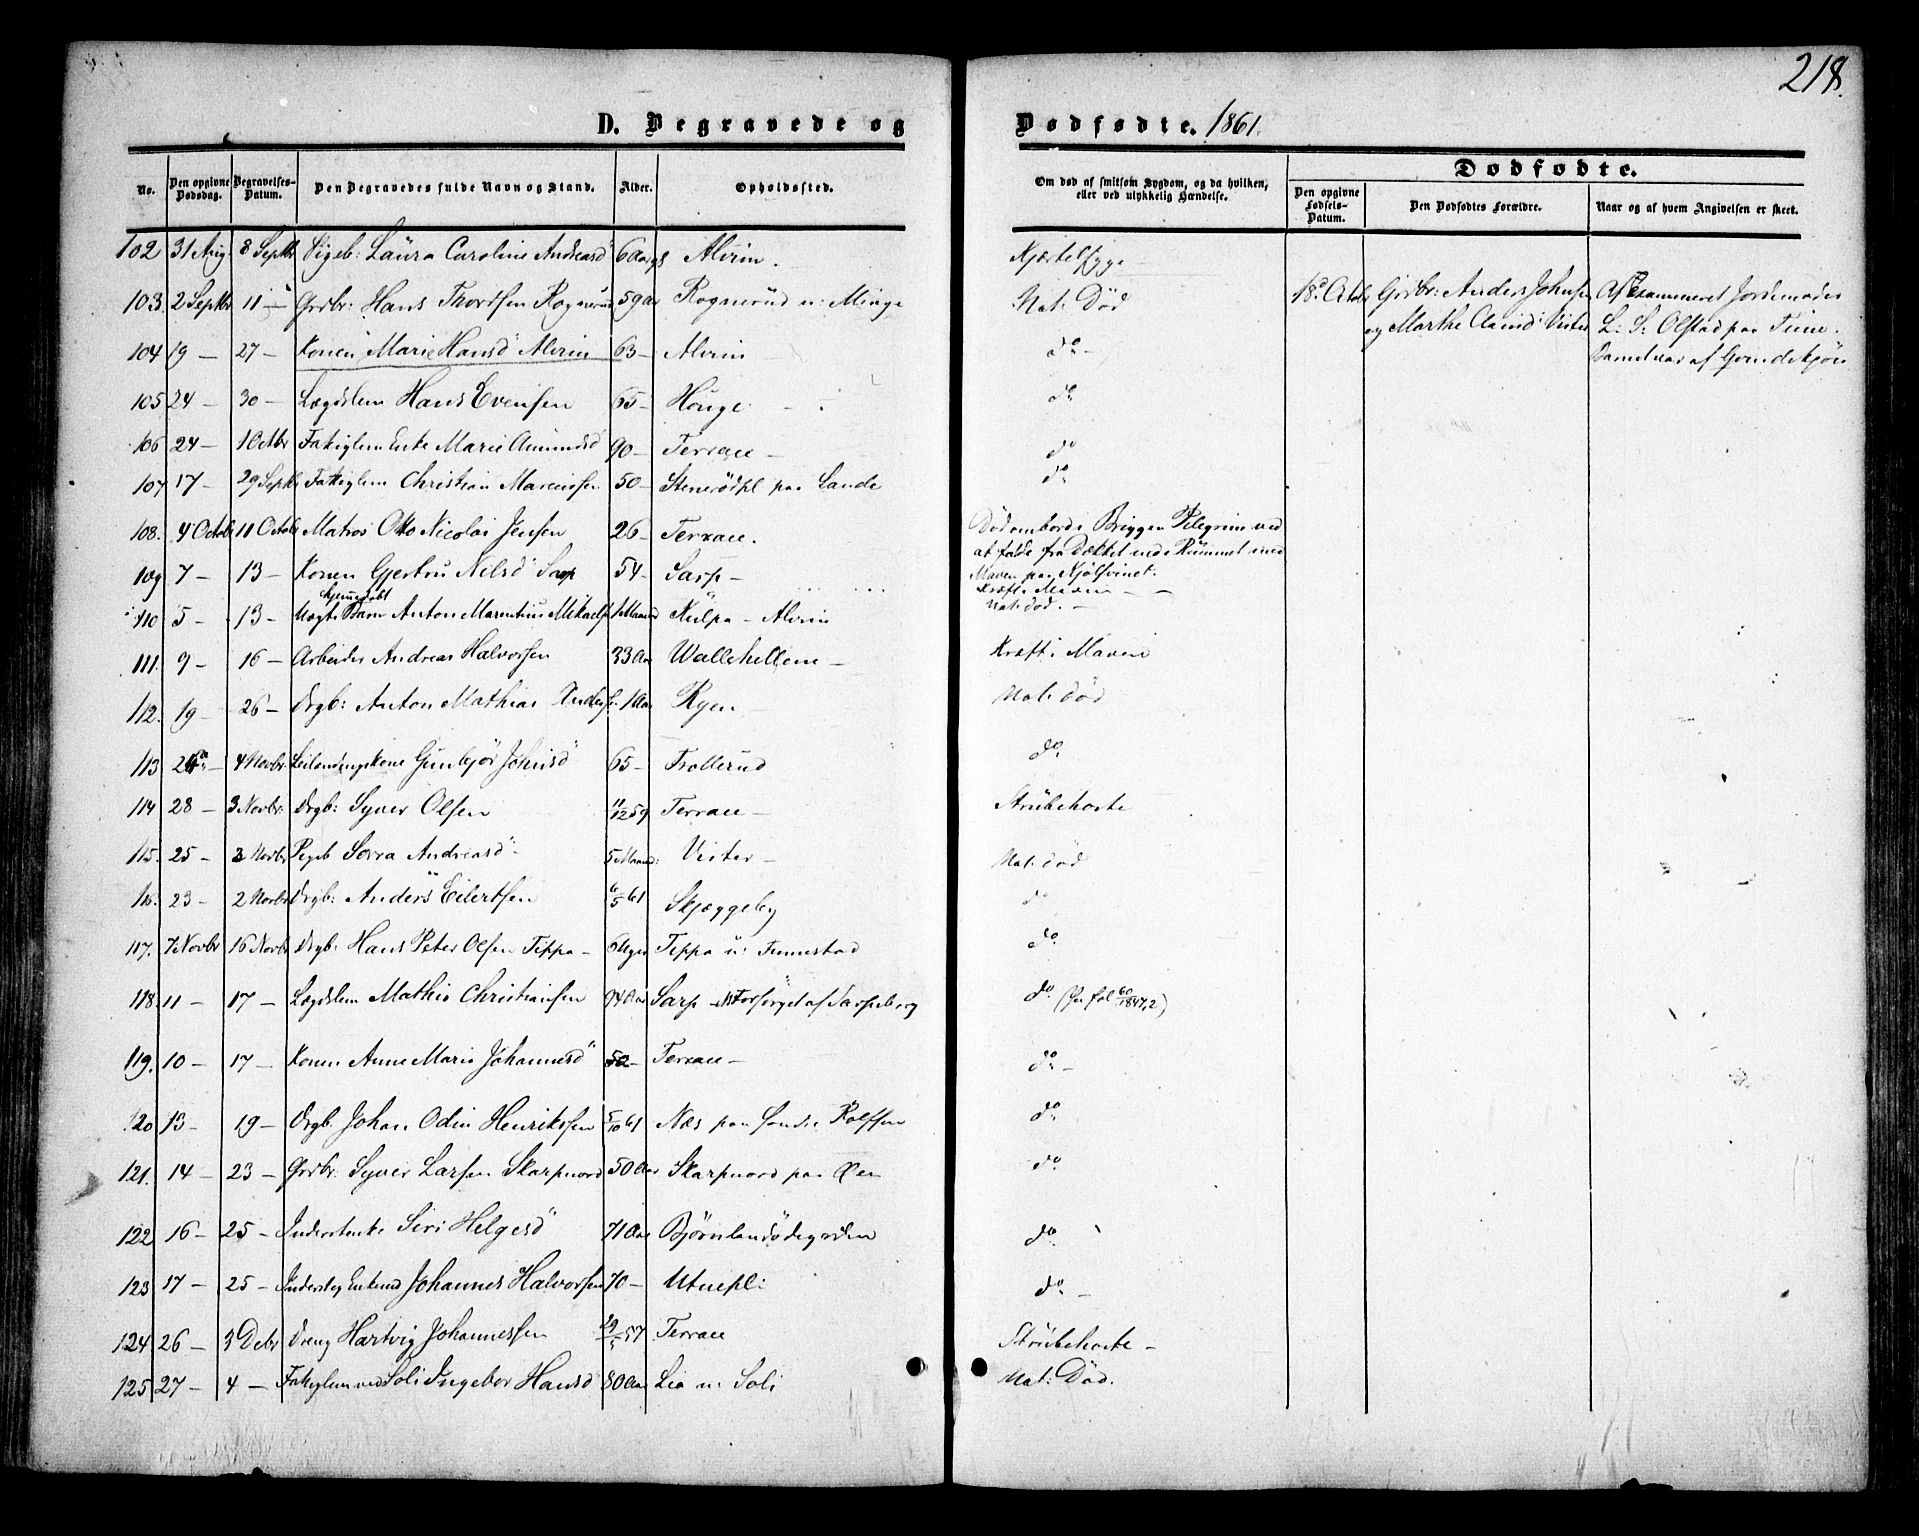 218.
D. Begravede og Dødfødte. 1861.
No. | Den opgivne Dødsdag. | Begravelses-Datum. | Den Begravedes fulde Navn og Stand. | Alder. | Opholdssted. | Om død af smitsom Sygdom, og da hvilken, eller ved ulykkelig Hændelse. | Dødfødte.
Den opgivne Fødsels-Datum. | Den Dødfødtes Forældre. | Naar og af hvem Angivelsen er skeet.
102 31 Aug. 8 Septbr Pigeb: Laura Caroline Andreasd" 6 Alvim. Kjertelsyge
103 2 Septbr 11 Grdbr: Hans Thordsen Rognerud 59 Aar Rognerud u: Minge Nat: Død
18d Octbr Grdbr: Anders Johnsen og Marthe Vister
Af Examineret Jordemoder L: S: Olstad paa Tune.
104 19 – 27 – Konen Marie Hansd" Alvim 63 – Alvim do –
105 24 – 30 – Lægdslem Hans Evensen 65 – Houge do
106 24 – 1 Octbr Fatiglem Enke Marie Amundsd 90 – Terrace – do
107 17 – 29 Septbr Fatiglem Christian 50 – Stenerødpl paa Sande do
108. 4 Octob 11 Octob Matros Otto Nicolai Jensen 26 – Terrace. Død ombord i Briggen Pilegrim ved
at falde fra Dækket ned i Rummet med
Maven paa Kjølsvinet.
109 7 – 13 – Konen Gjertru Nilsd" Sarp 54 – Sarp – Kræft i Maven – –
110 5 – 13 – hjemmedøbt Uægte Barn Anton Marentius Mikaels 1 Maaned Kulpa – Alvim Nat: død. –
111. 9 – 16 – Arbeider Andreas Halvorsen 33 Aar Wallehellene – Kræft i Maven
112. 19 – 26 – Drgb: Anton Mathias 1 Aar Ryen – Nat: død
113 – 4 Novbr Leilendingskone Gunbjør Johnsd" 65 – Trollerud do
114 28 – 3 Novbr: Drgb: Syver Olsen 11/12 59 Terrace – Strubehoste
115. 25 – 3 Novbr Pigeb Andreasd" – 5 Maaned: Vister – Nat: død
116. 23 – 2 Novbr Drgb: Anders Eilertsen 6/5 61 Skjæggeby do
117. 7 Novbr 16 Novbr Drgb: Hans Peter Olsen Tippa – 6 Uger Tippa u: Tunestad do
118. 11 – 17 – Lægdslem Mathis Christiansen Aar Sarp – forsørget af Sarpsborg do (Jvr fol 60/1847,2)
119. 10 – 17 – Konen Anne Marie Johannesd" 52 – Terrace – do –
120 13 – 19 – Drgb. Johan Odin Henrikssen 5/10 61 Næs paa Søndre Rolfsøen do
121. 14 – 23 – Grdbr: Syver Larsen Skarpnord 50 Aar Skarpnord paa Øen do
122 16 – 25 – Inderstenke Siri Helgesd" 71 Aar Bjørnlandødegarden do
123 17 – 25 – Inderst og Enkemd Johannes Halvorsen 70 – Utnepl: do –
124 26 – 3 Debr Dreng Hartvig Johannessen 57 Terrace Strubehoste –
125 27 – 4 – Fatiglem ved Soli Ingebor Hansd 80 Aar Lia u: Soli Nat: Død.